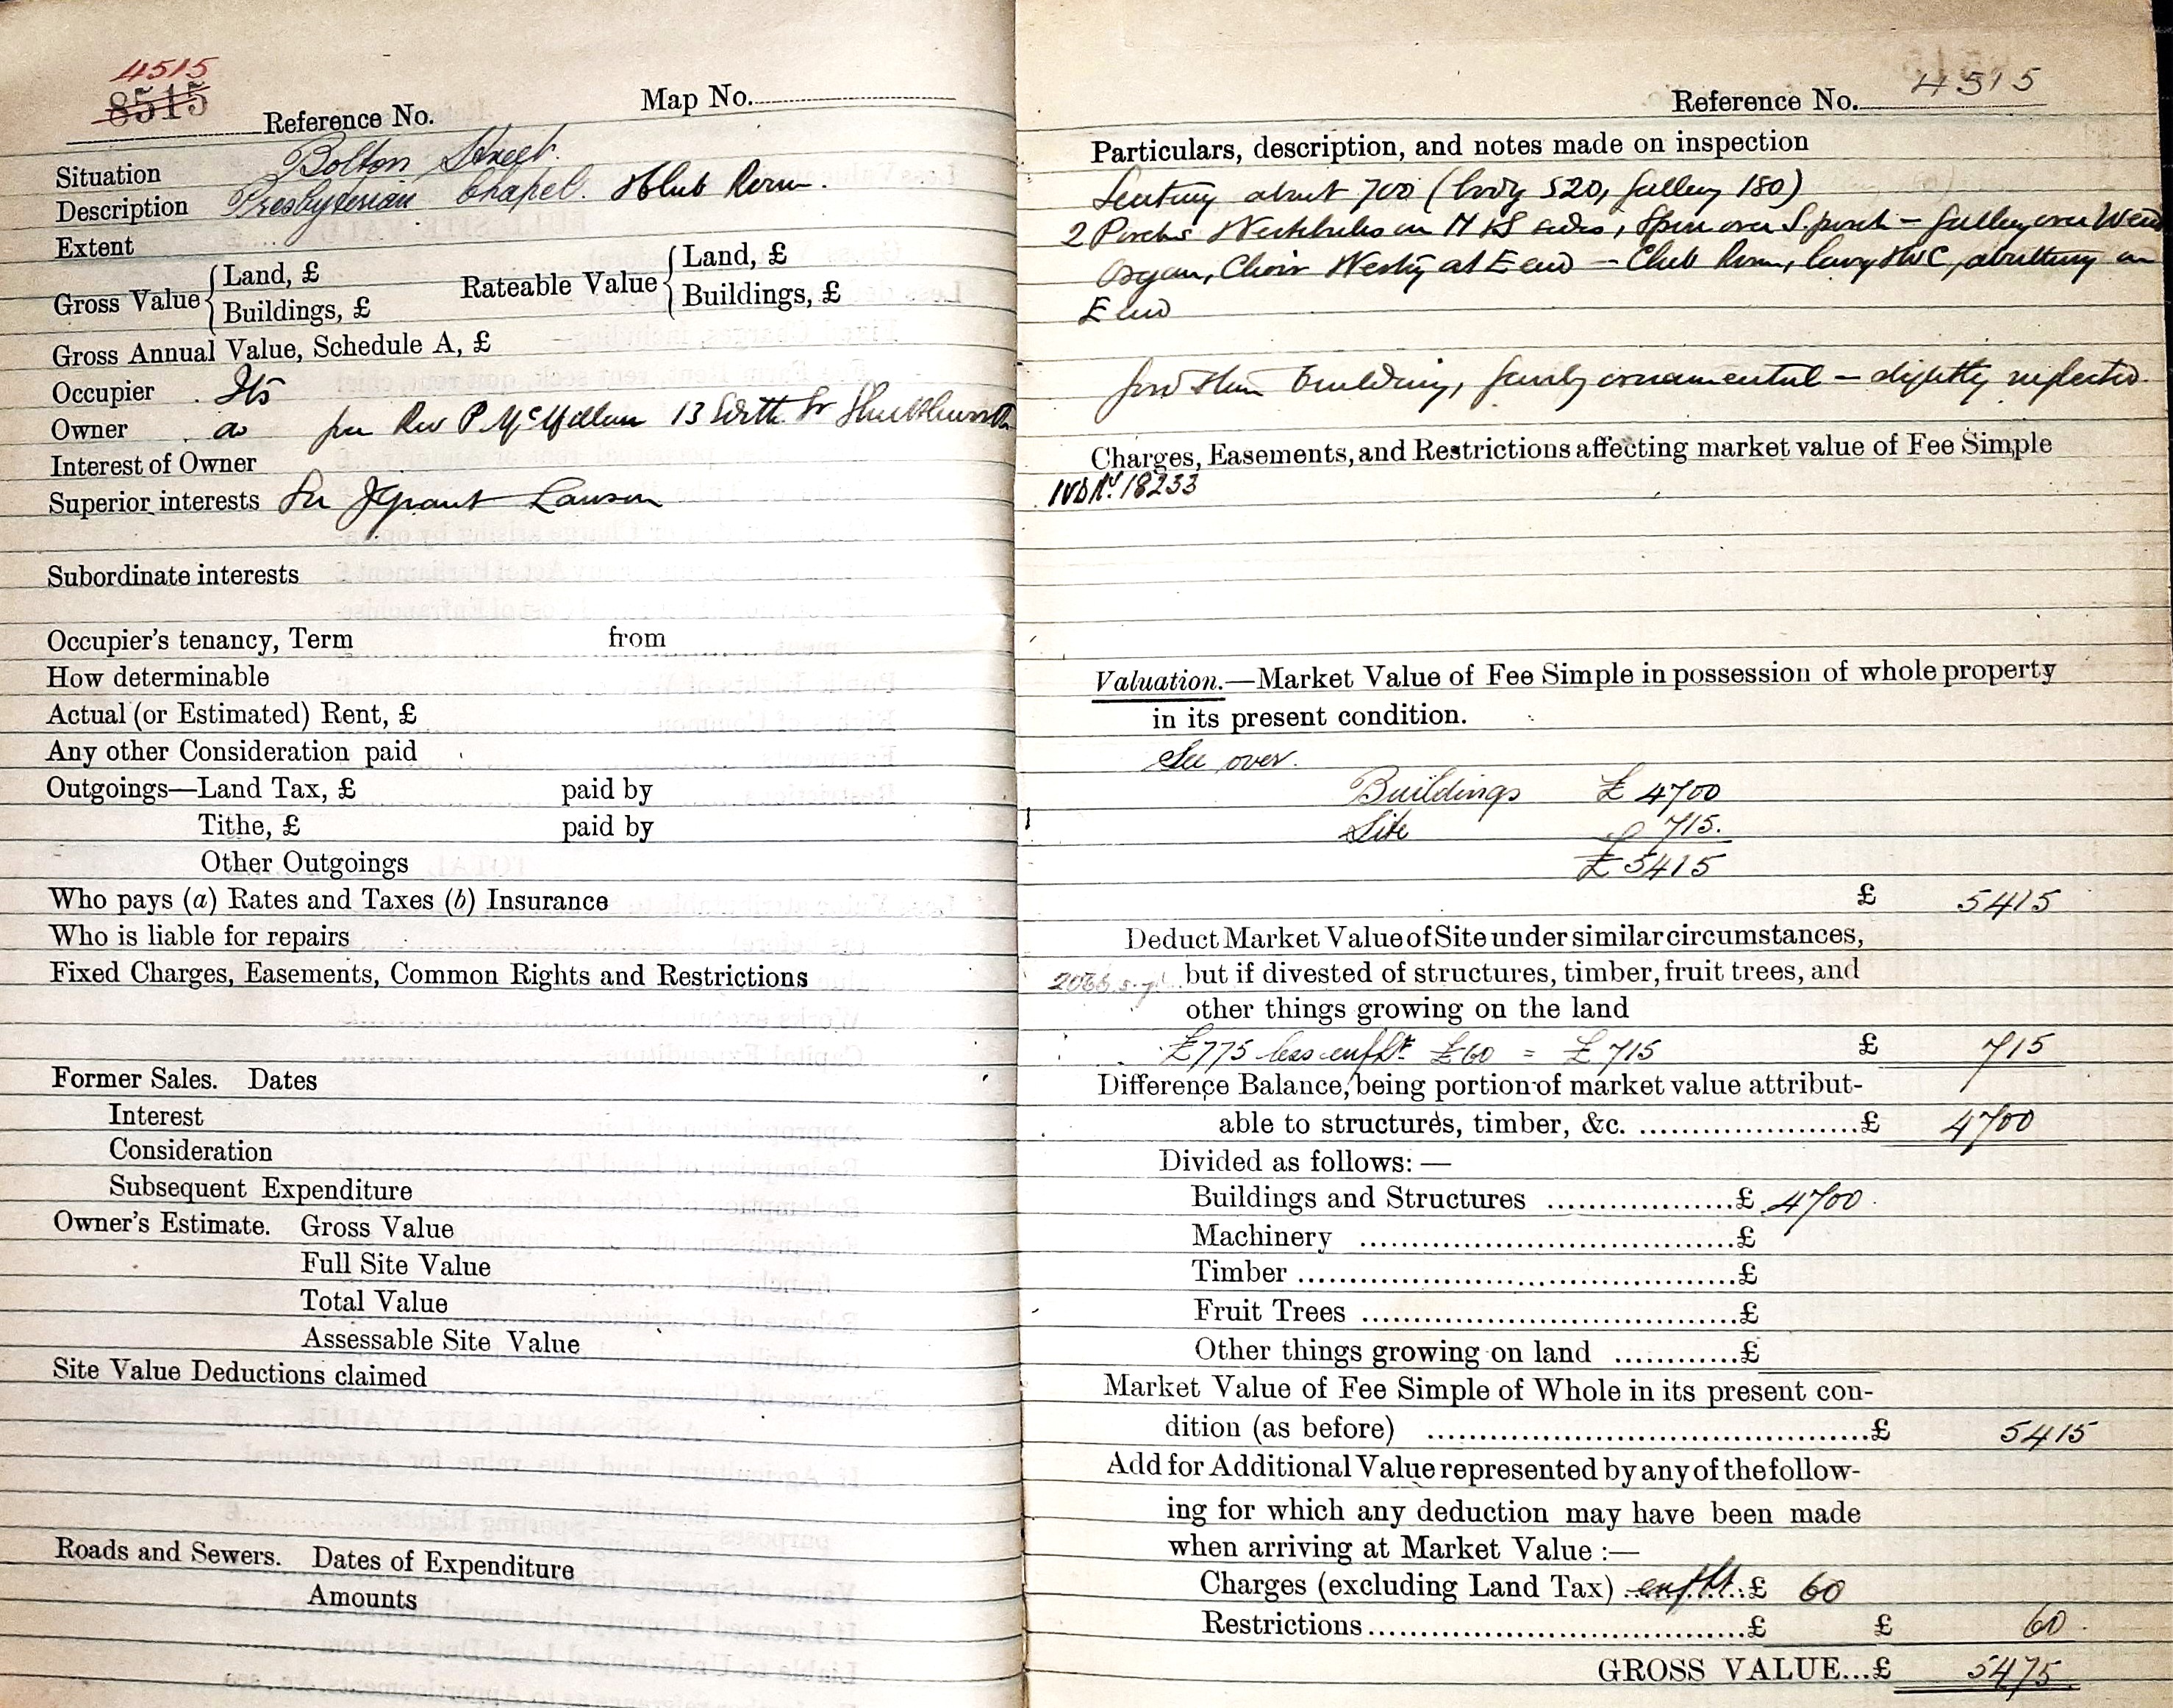 4515
8515
Reference No.
Map No.
Situation Bolton Street.
Description Presbyterian Chapel. & Club Room.
Extent
Gross Value { Land, £ Rateable Value { Land, £
Buildings, £ Buildings, £
Gross Annual Value, Schedule A, £
Occupier
Owner per Rev P McMillan 13
Interest of Owner
Superior interests Sir J Grant Lawson
Subordinate interests
Occupier's tenancy, Term from
How determinable
Actual (or Estimated) Rent, £
Any other Consideration paid
Outgoings—Land Tax, £ paid by
Tithe, £ paid by
Other Outgoings
Who pays (a) Rates and Taxes (b) Insurance
Who is liable for repairs
Fixed Charges, Easements, Common Rights and Restrictions
Former Sales. Dates
Interest
Consideration
Subsequent Expenditure
Owner's Estimate. Gross Value
Full Site Value
Total Value
Assessable Site Value
Site Value Deductions claimed
Roads and Sewers. Dates of Expenditure
Amounts
Reference No. 4515
Particulars, description, and notes made on inspection
Seating about 700 (body 520, gallery 180)
2 Porches & Vestibules on N & S sides, Spire over S. porch – gallery over W end
Organ, Choir Vestry at E end – Club Room, Lavy & WC, abutting on
E end
Good stone building, fairly ornamental – slightly neglected
Charges, Easements, and Restrictions affecting market value of Fee Simple
IVD No. 18233
Valuation.—Market Value of Fee Simple in possession of whole property
in its present condition.
See over.
Buildings £ 4700
Site £ 715.
£ 5415
£ 5415
Deduct Market Value of Site under similar circumstances,
but if divested of structures, timber, fruit trees, and
other things growing on the land
£775 less enfht £60 = £715 £ 715
Difference Balance, being portion of market value attribut-
able to structures, timber, &c. ....................£ 4700
Divided as follows: —
Buildings and Structures ..................£ 4700.
Machinery ....................................£
Timber ..........................................£
Fruit Trees ....................................£
Other things growing on land ............£
Market Value of Fee Simple of Whole in its present con-
dition (as before) ...........................................£ 5415
Add for Additional Value represented by any of the follow-
ing for which any deduction may have been made
when arriving at Market Value :—
Charges (excluding Land Tax) enfht £ 60
Restrictions....................................£ £ 60.
GROSS VALUE...£ 5475